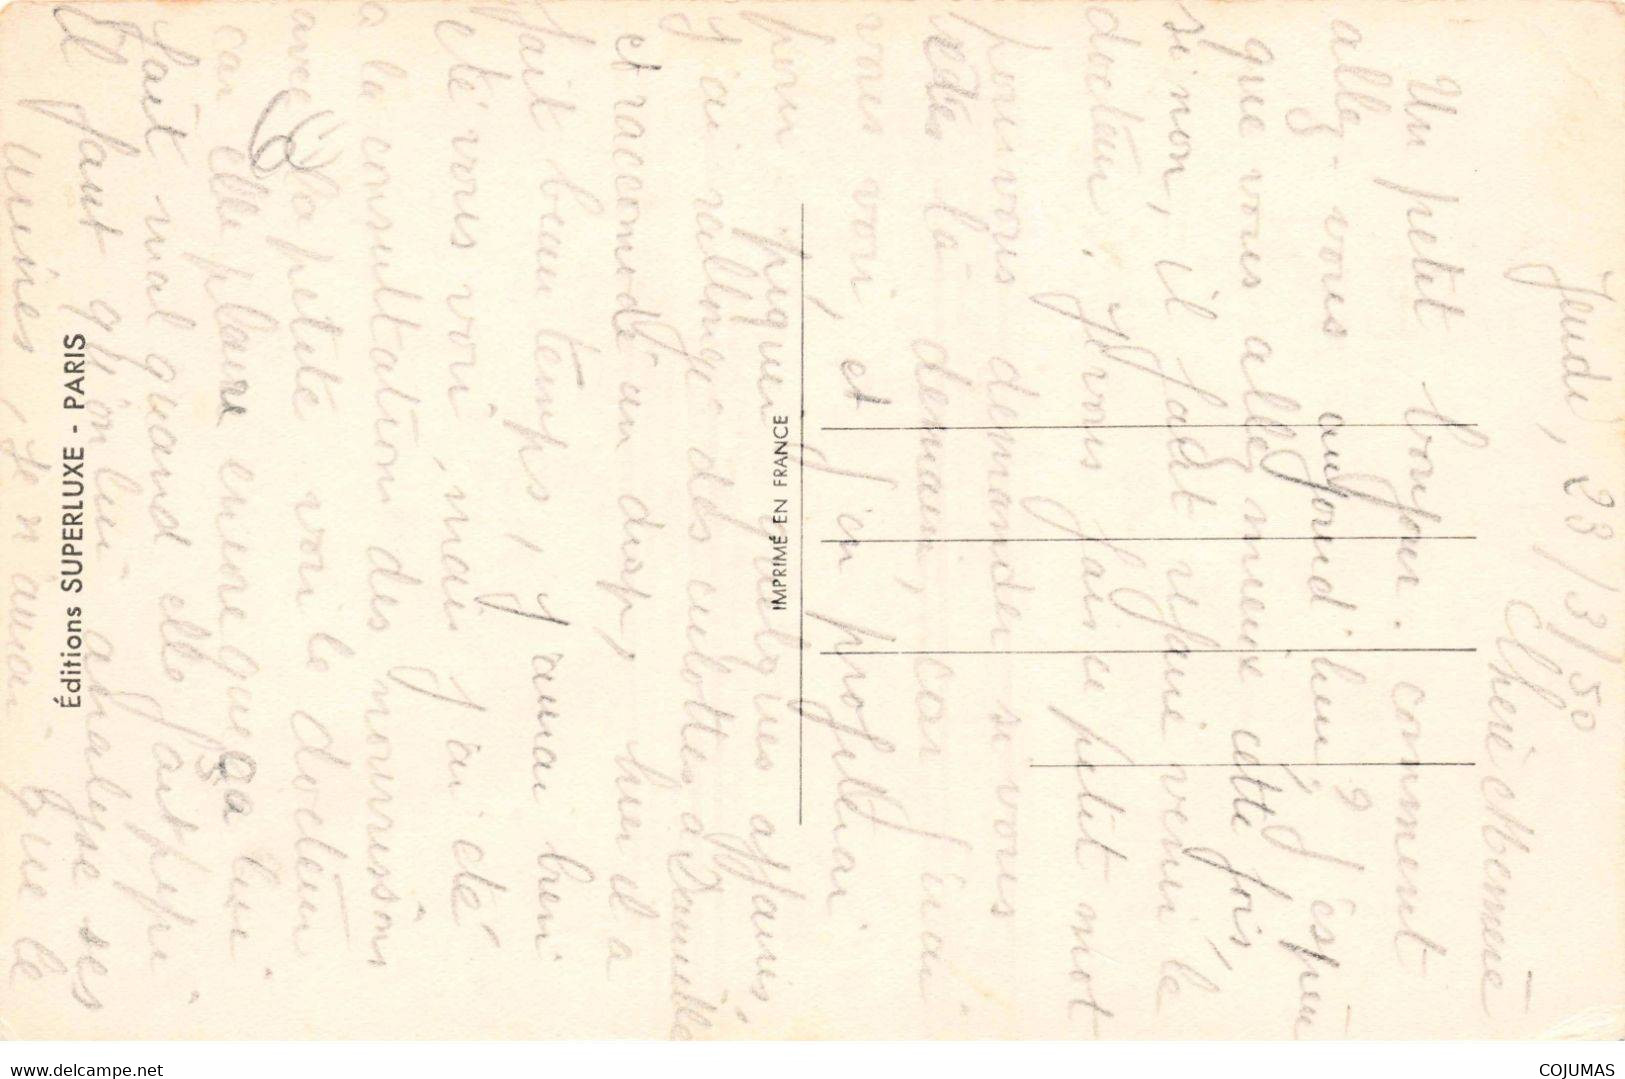 Jeudi, 23/3/50
Chère Mémère
Un petit bonjour. comment
allez-vous aujourd'hui? J'espère
que vous allez mieux cette fois,
si non, il faut refaire venir le
docteur. Je vous fais ce petit mot
pour vous demander si vous
là demain, car j'irai
vous voir, et j'en profiterai
pour piquer quelques affaires,
j'ai rallongé des culottes, à Danielle
et raccomodé un drap, hier il a
fait beau temps, j'aurai bien
été vous voir, mais j'ai été
a la consultation des nourrissons
avec la petite voir le docteur
car elle pleure encore que ça lui
fait mal quand elle fait pipi
Il faut qu'on lui analyse ses
urines, je n'aurai que le
6
Éditions SUPERLUXE - PARIS
IMPRIMÉ EN FRANCE
www.delcampe.net
COJUMAS